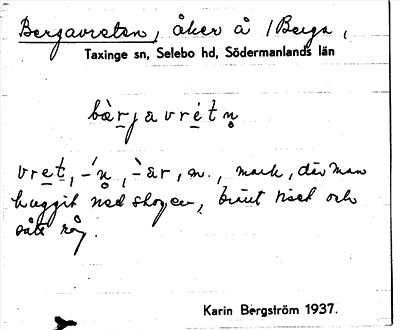 Bergavreten, åker å 1 Berga,
Taxinge sn, Selebo hd, Södermanlands län
bèrjavrétn̥
vret, -́n̥, -̀ar, m., mark, där man
huggit ned skogen, bränt riset och
sått råg.
Karin Bergström 1937.